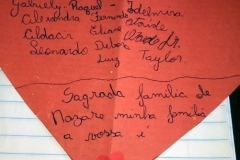 Gabriely - Raquel - Edelmira
Alexandra Fernando Ataíde
Cildacir Eliane Jr.
Leonardo Debora
Luiz Taylor
Sagrada familia de
Nazaré minha familia
a vossa é